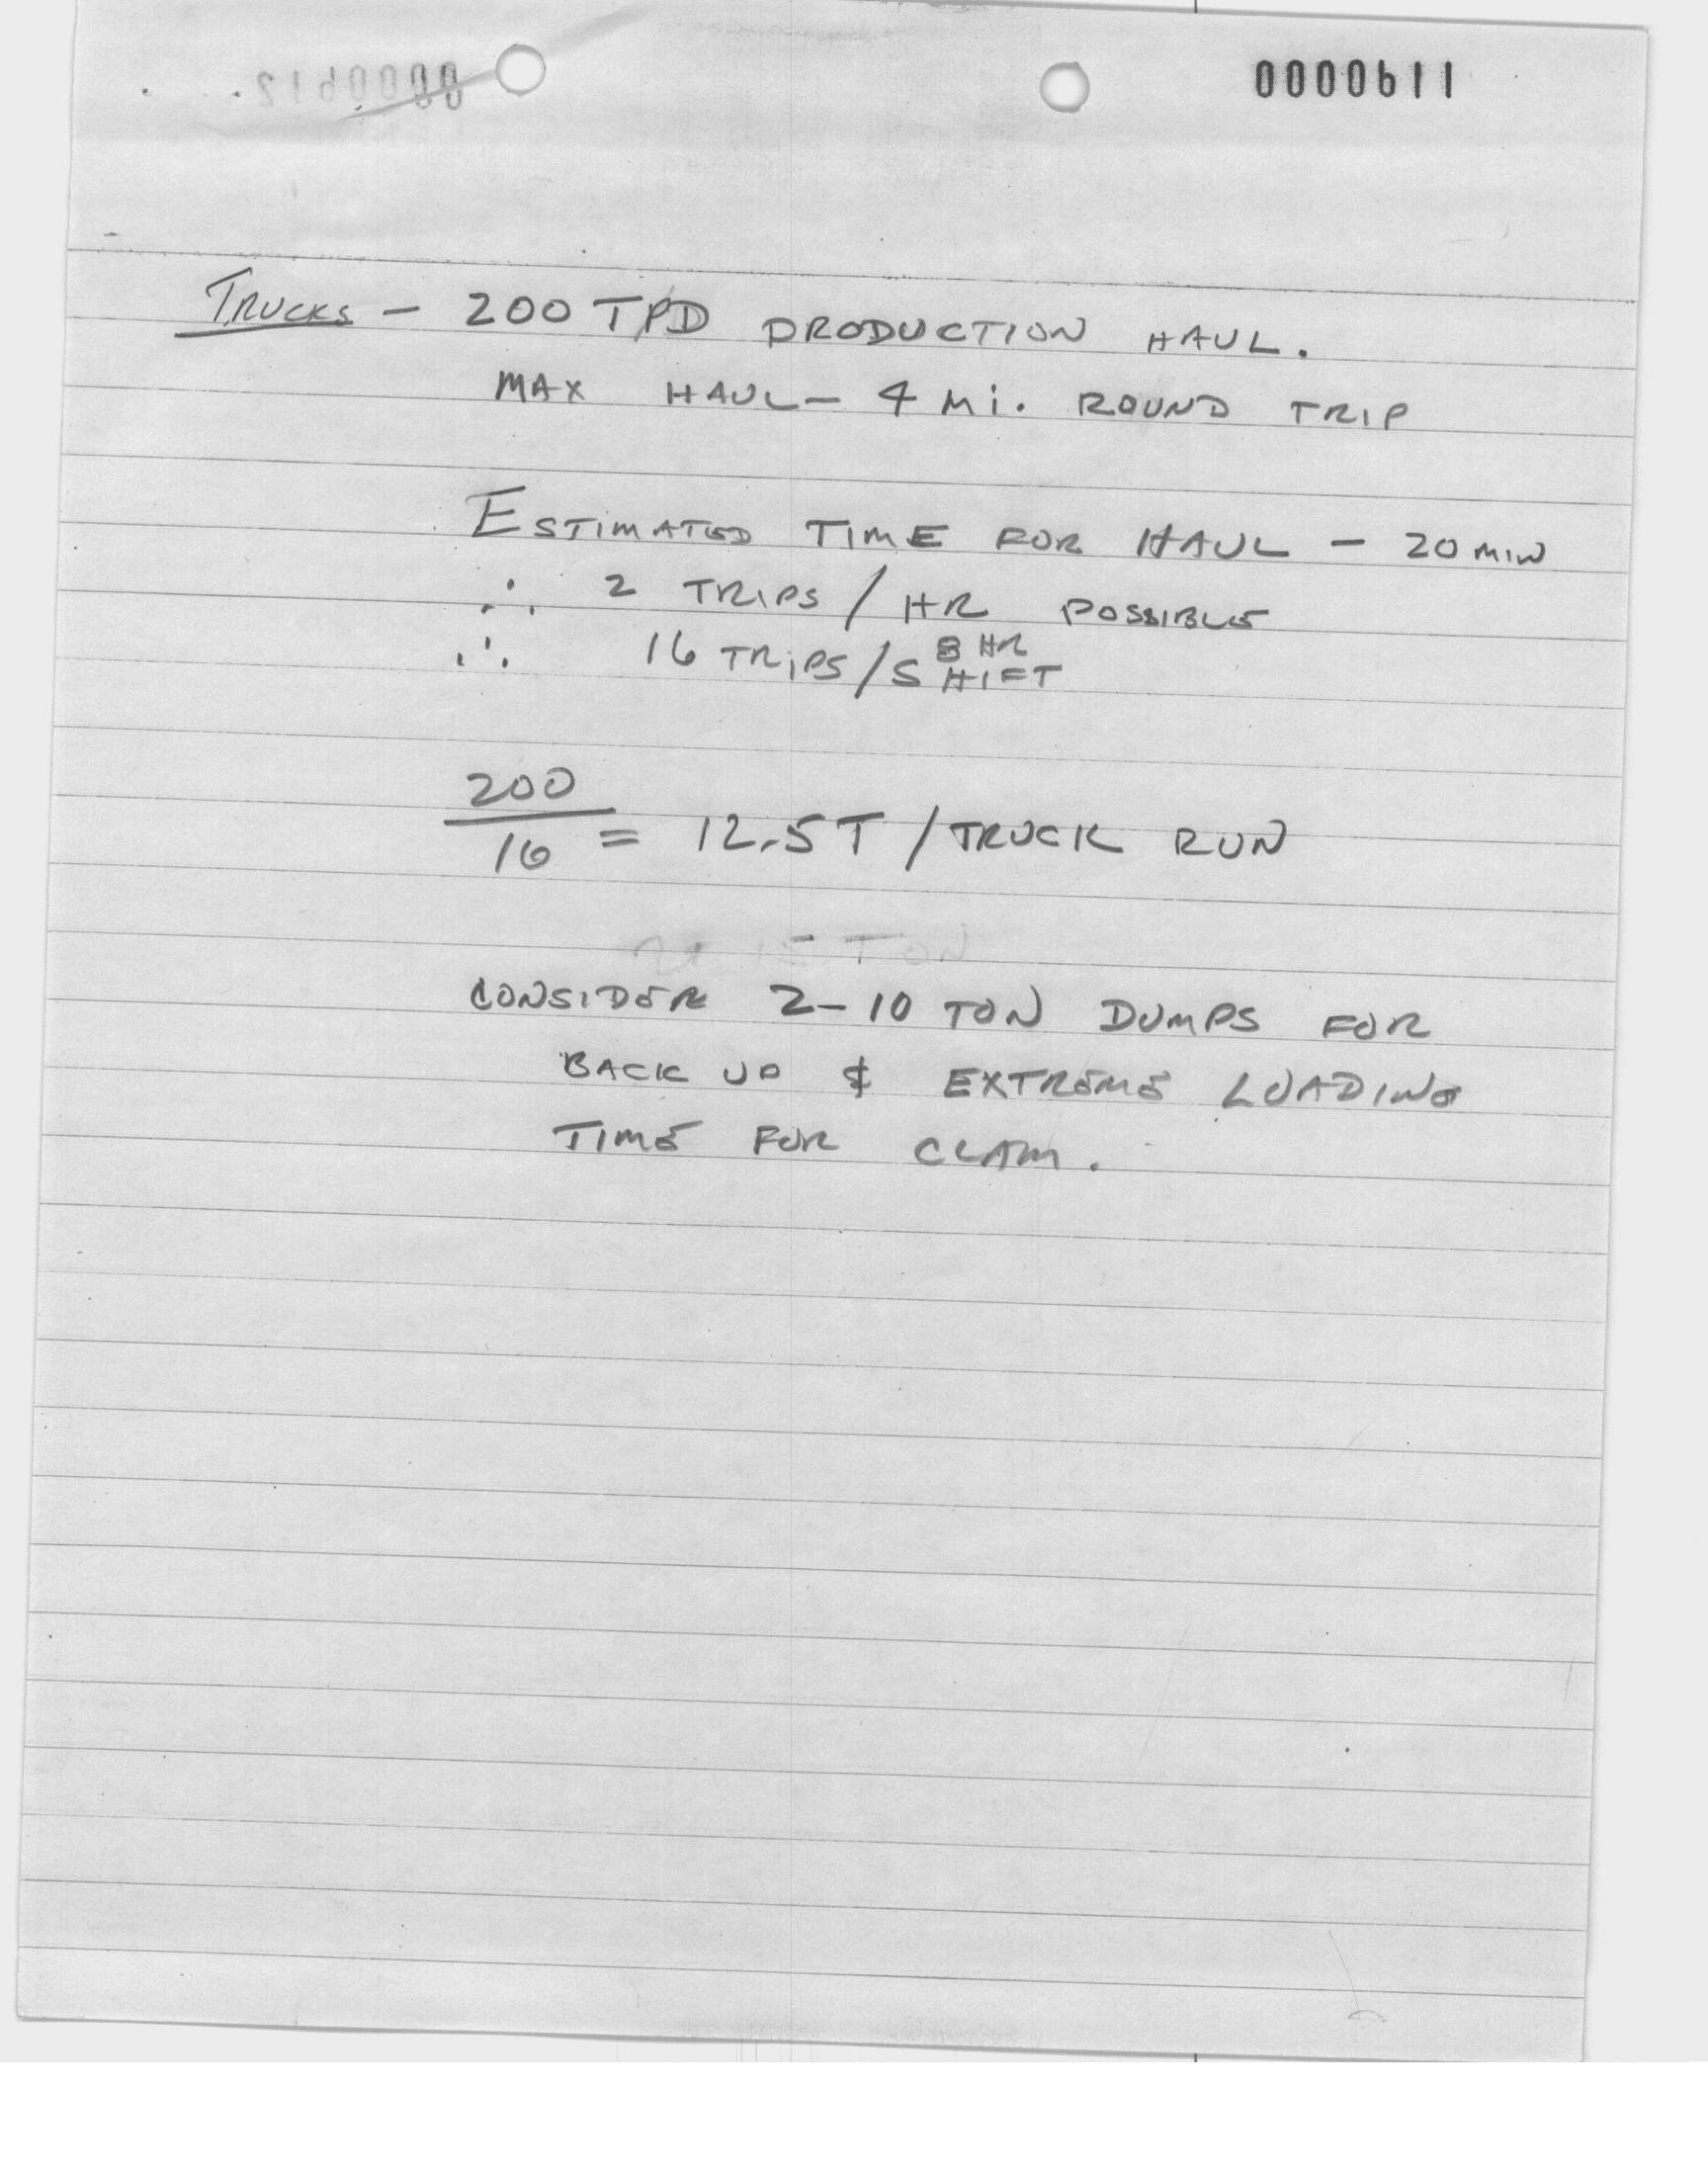 0000611
TRUCKS – 200 TPD PRODUCTION HAUL.
MAX HAUL – 4 Mi. ROUND TRIP
ESTIMATED TIME FOR HAUL – 20 MIN
∴ 2 TRIPS / HR POSSIBLE
∴ 16 TRIPS / 8 HR SHIFT
200
16 = 12.5 T / TRUCK RUN
CONSIDER 2–10 TON DUMPS FOR
BACK UP & EXTREME LOADING
TIME FOR CLAIM.